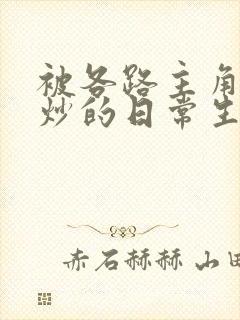 被各路主角
炒的日常生
赤石赫赫 山田